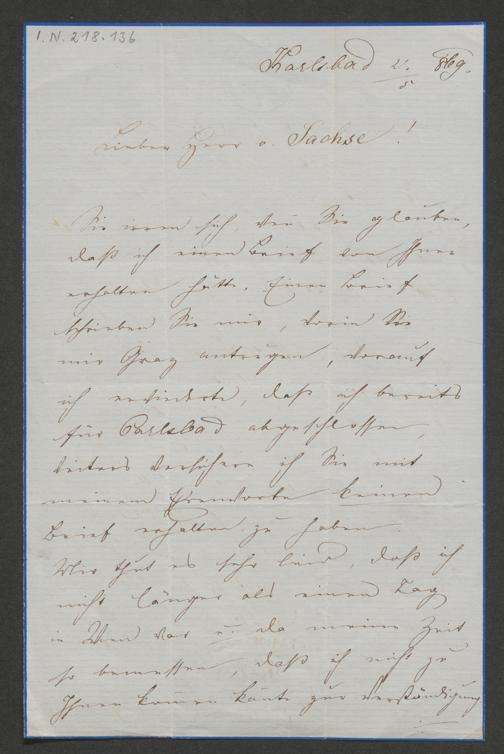 I.N. 218.136
Karlsbad 2./5 869.
Lieber Herr v. Sachse!
Sie irren sich, wen Sie glauben,
daß ich einen Brief von Ihnen
erhalten hätte. Einen Brief
schrieben Sie mir, worin Sie
mir Graz antrugen, worauf
ich erwiederte, daß ich bereits
für Carlsbad abgeschlossen,
weiters versichere ich Sie mit
meinem Ehrenworte keinen
Brief erhalten zu haben.
Mir thut es sehr leid, daß ich
nicht länger als einen Tag
in Wien war u. da meine Zeit
so bemessen, daß ich nicht zu
Ihnen komen konte zur Verständigung